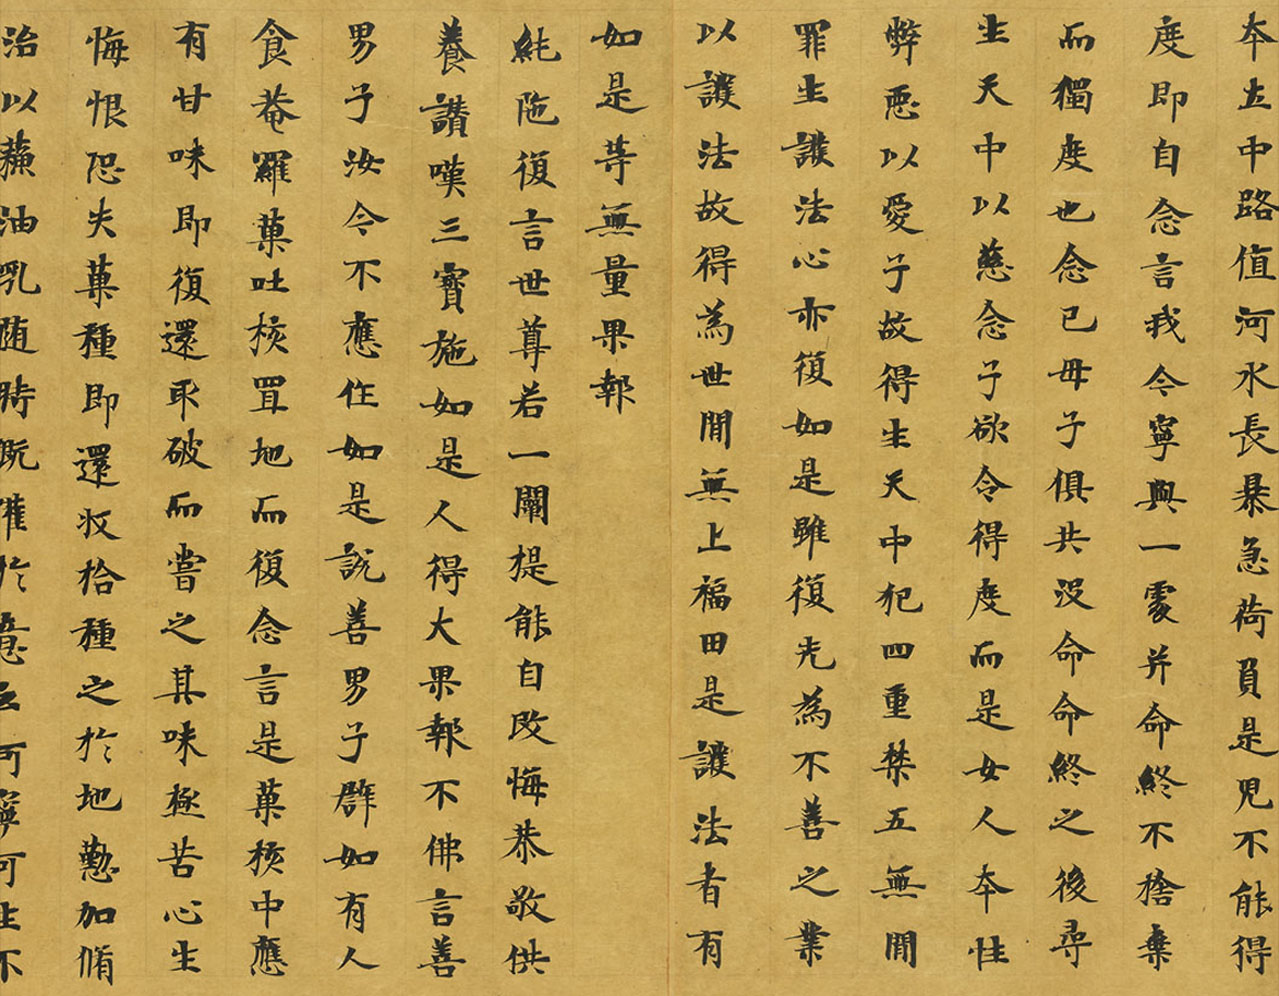 夲立中路值河水長暴急荷負是兒不能得
度即自念言我今寧與一處并命終不捨棄
而獨度也念已母子俱共没命命終之後尋
生天中以慈念子欲令得度而是女人夲性
弊惡以愛子故得生天中犯四重禁五無間
罪生護法心亦復如是雖復先為不善之業
以護法故得為世間無上福田是護法者有
如是等無量果報
純陁復言世尊若一闡提能自改悔恭敬供
養讃嘆三寶施如是人得大果報不佛言善
男子汝今不應住如是説善男子譬如有人
食菴羅菓吐核置地而復念言是菓核中應
有甘味即復還取破而嘗之其味極苦心生
悔恨恐失菓種即還收拾種之於地懃加脩
治以蘇油乳随時溉灌於意云何寧可生不